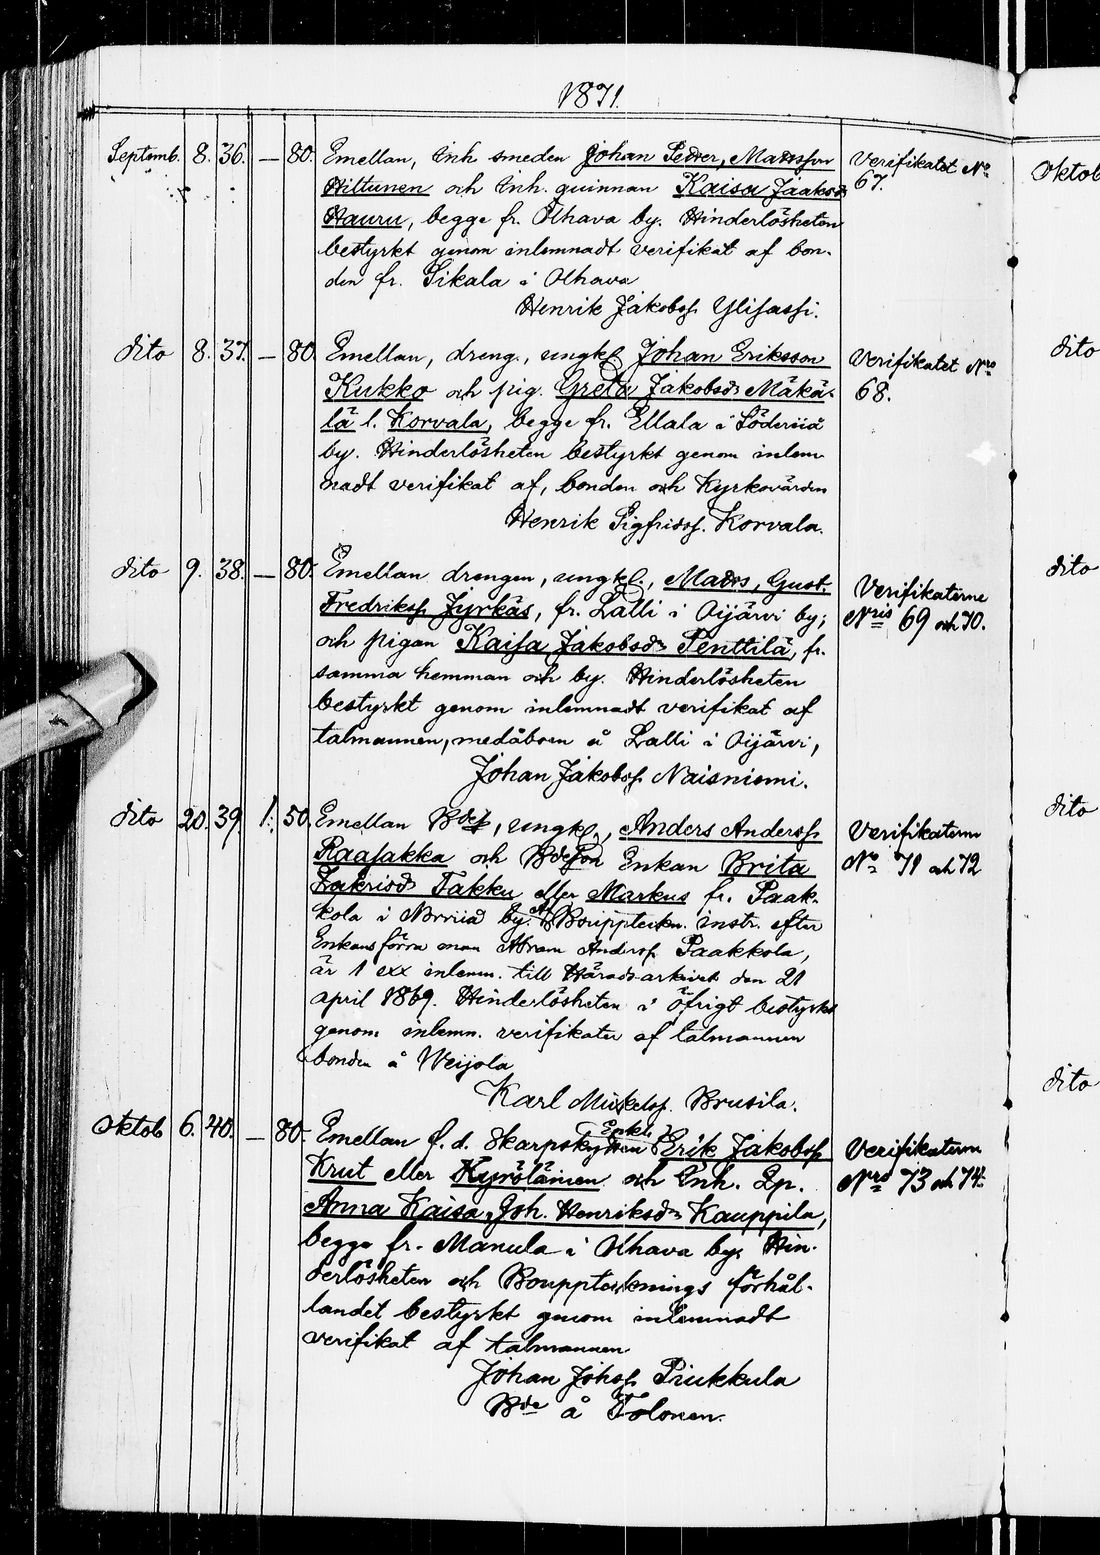 1871.
Septemb. 8. 36. — 80. Emellan, Inh smeden Johan Peder, Matsson Verifikatet No
Hiltunen och Inh. quinnan Kaisa Jaaksd: 67.
Hauru, begge fr. Olhava by. Hinderlösheten
bestyrkt genom inlemnadt verifikat af bon-
den fr. Sikala i Olhava
Henrik Jakobss. Ylisassi.
dito 8. 37. — 80. Emellan, dreng., ungkl Johan Eriksson Verifikatet Nro
Kukko och pig. Greta Jakobsdr Mäkä- 68.
lä l. Korvala, begge fr. Ellala i Söderiiå
by. Hinderlösheten bestyrkt genom inlem
nadt verifikat af, bonden och Kyrkovärden
Henrik Sigfridss. Korvala.
dito 9. 38. — 80. Emellan drengen, ungkl., Matts, Gust. Verifikaterne
Fredrikss. Jyrkäs, fr. Lalli i Oijärvi by; Nris 69 och 70.
och pigan Kaisa Jakobsdr Penttilä, fr.
samma hemman och by. Hinderlösheten
bestyrkt genom inlemnadt verifikat af
talmannen, medåboen å Lalli i Oijärvi,
Johan Jakobss. Naisniemi.
dito 20. 39. 1: 50. Emellan Bdes, ungkl., Anders Anderss. Verifikaterne
Raasakka och Bdeson Enkan Brita No 71 och 72
Zakrisd: Takku eller Markus fr. Paak-
kola i Norriiå by. Att Bouppteckn. instr. efter
Enkans förra man Abram Anderss. Paakkola,
är 1 exx inlemn. till Häradsarkivet den 21
april 1869. Hinderlösheten i öfrigt bestyrkt
genom inlemn. verifikater af talmannen
bonden å Weijola
Karl Mickelss. Brusila.
Oktob 6. 40. — 80. Emellan f. d. Skarpskytten Enkl. Erik Jakobss. Verifikaterne
Krut eller Kyröläinen och Inh. Ep. Nris 73 och 74.
Anna Kaisa, Joh. Henriksdr Kauppila,
begge fr. Manula i Olhava by. Hin-
derlösheten och Boupptecknings förhål-
landet bestyrkt genom inlemnadt
verifikat af talmannen
Johan Johss. Piukkula
Bde å Tolonen.
Oktob
dito
dito
dito
dito